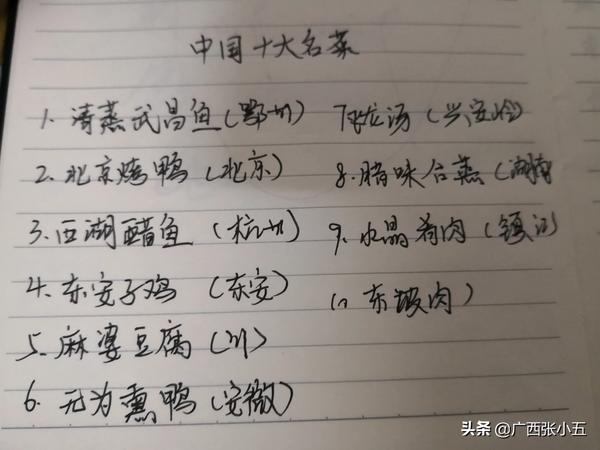 中国十大名菜
1. 清蒸武昌鱼(鄂州)
2. 北京烤鸭(北京)
3. 西湖醋鱼(杭州)
4. 东安子鸡(东安)
5. 麻婆豆腐(川)
6. 无为熏鸭(安徽)
7飞龙汤(兴安岭)
8. 腊味合蒸(湖南
9. 水晶肴肉(镇江
10 东坡肉)
头条 @广西张小五